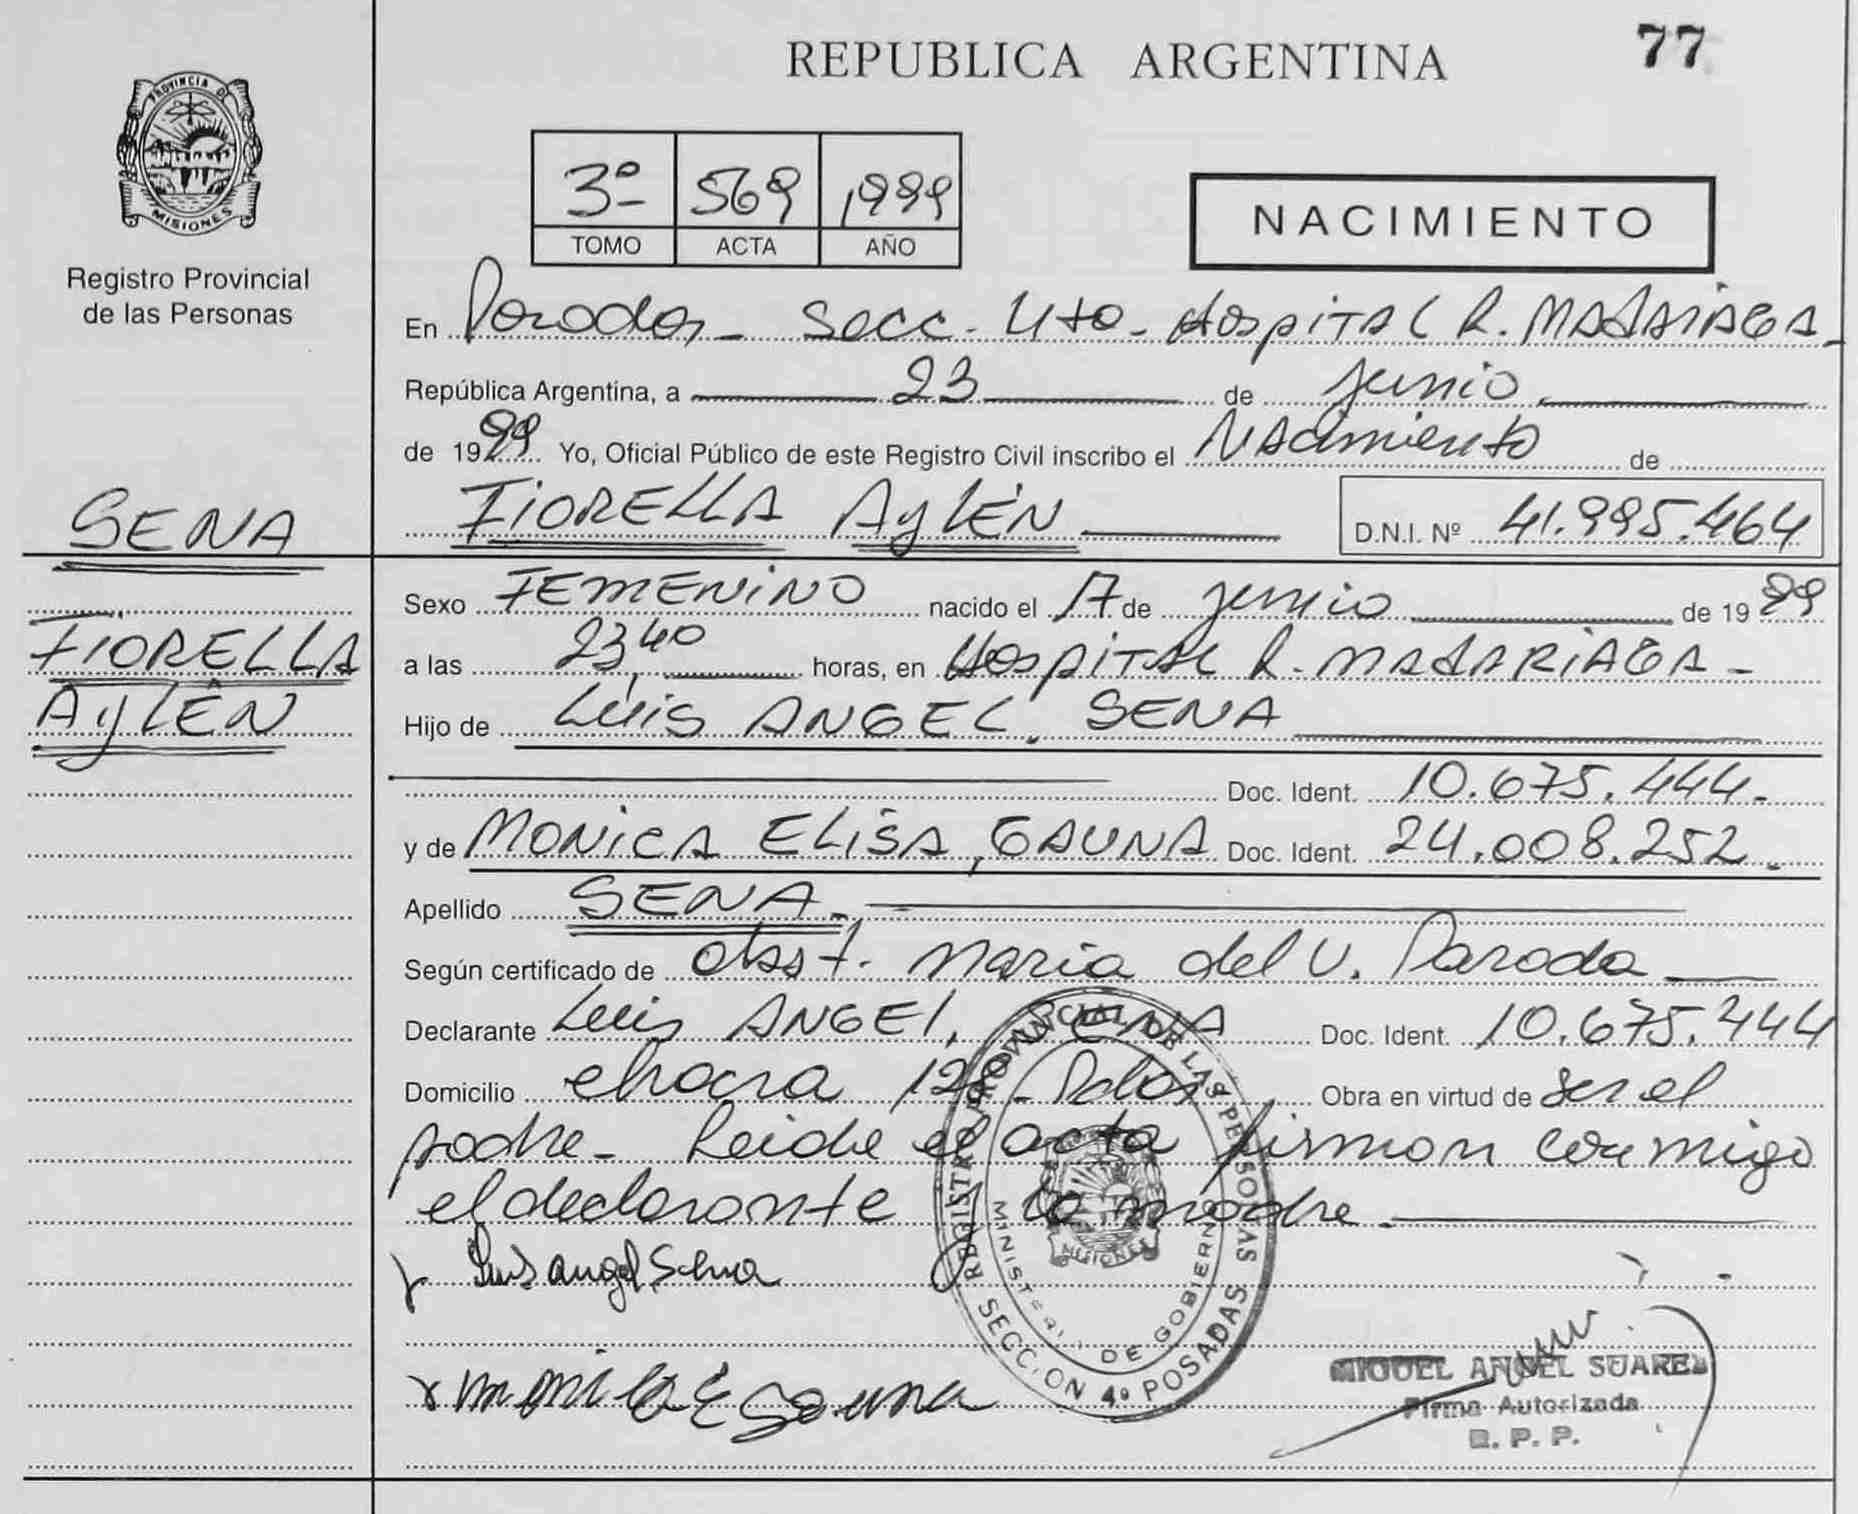 REPUBLICA ARGENTINA
77
PROVINCIA DE
MISIONES
Registro Provincial
de las Personas
3º 569 1999
TOMO ACTA AÑO
NACIMIENTO
En Posadas - Secc. 4to - Hospital R. MADARIAGA -
República Argentina, a 23 de junio
de 1999 Yo, Oficial Público de este Registro Civil inscribo el Nacimiento de
FIORELLA AyLÉN D.N.I. Nº 41.995.464
SENA
FIORELLA
AyLÉN
Sexo FEMENINO nacido el 17 de junio de 1999
a las 23,40 horas, en HOSPITAL R. MADARIAGA -
Hijo de Luis ANGEL, SENA
Doc. Ident. 10.675.444 -
y de MONICA ELISA, GAUNA Doc. Ident. 24.008.252 -
Apellido SENA -
Según certificado de obst. Maria del V. Paroda
Declarante Luis ANGEL, SENA Doc. Ident. 10.675.444
Domicilio chacra 128 - Pdas Obra en virtud de ser el
padre - Leida el acta firman conmigo
el declarante y la madre -
Luis angel Sena
monica E gauna
REGISTRO PROVINCIAL DE LAS PERSONAS
MINISTERIO DE GOBIERNO
MISIONES
SECCION 4º POSADAS
MIGUEL ANGEL SUAREZ
Firma Autorizada
R. P. P.